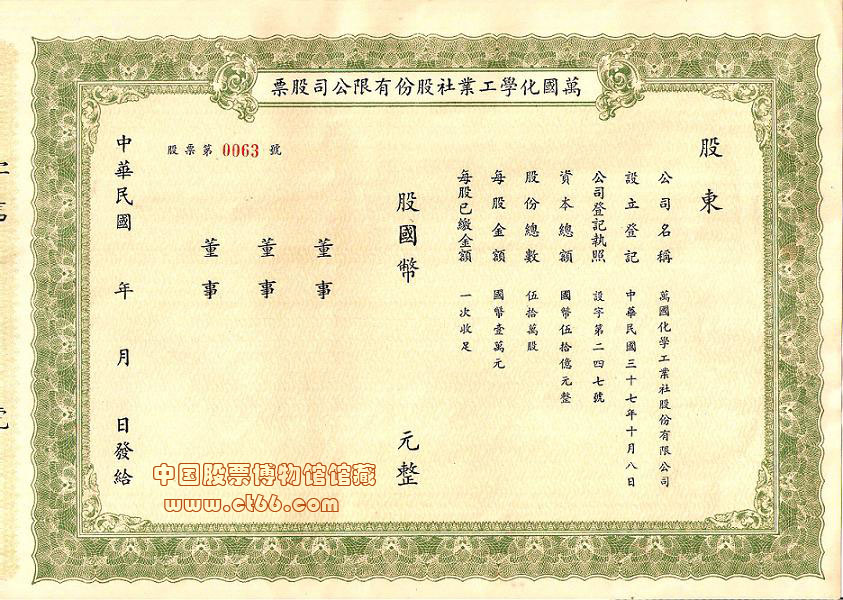 萬國化學工業社股份有限公司股票
股東
公司名稱 萬國化學工業社股份有限公司
設立登記 中華民國三十七年十月八日
公司登記執照 設字第二四七號
資本總額 國幣伍拾億元整
股份總數 伍拾萬股
每股金額 國幣壹萬元
每股已繳金額 一次收足
股國幣 元整
董事
董事
董事
股票第 0063 號
中華民國 年 月 日發給
中国股票博物馆馆藏
www.ct66.com